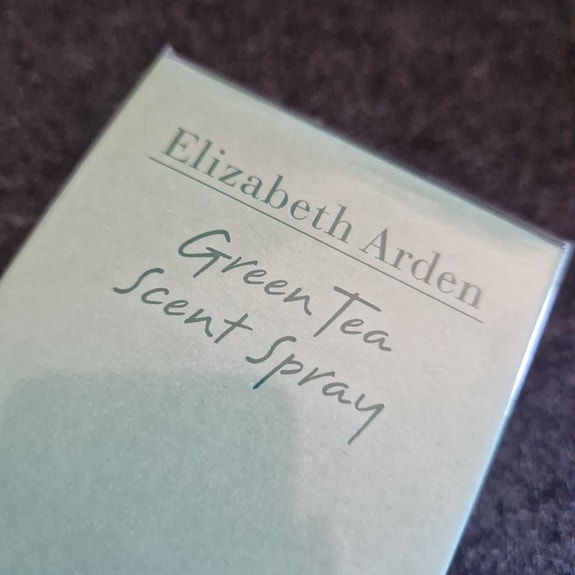 Elizabeth Arden
Green Tea
Scent Spray